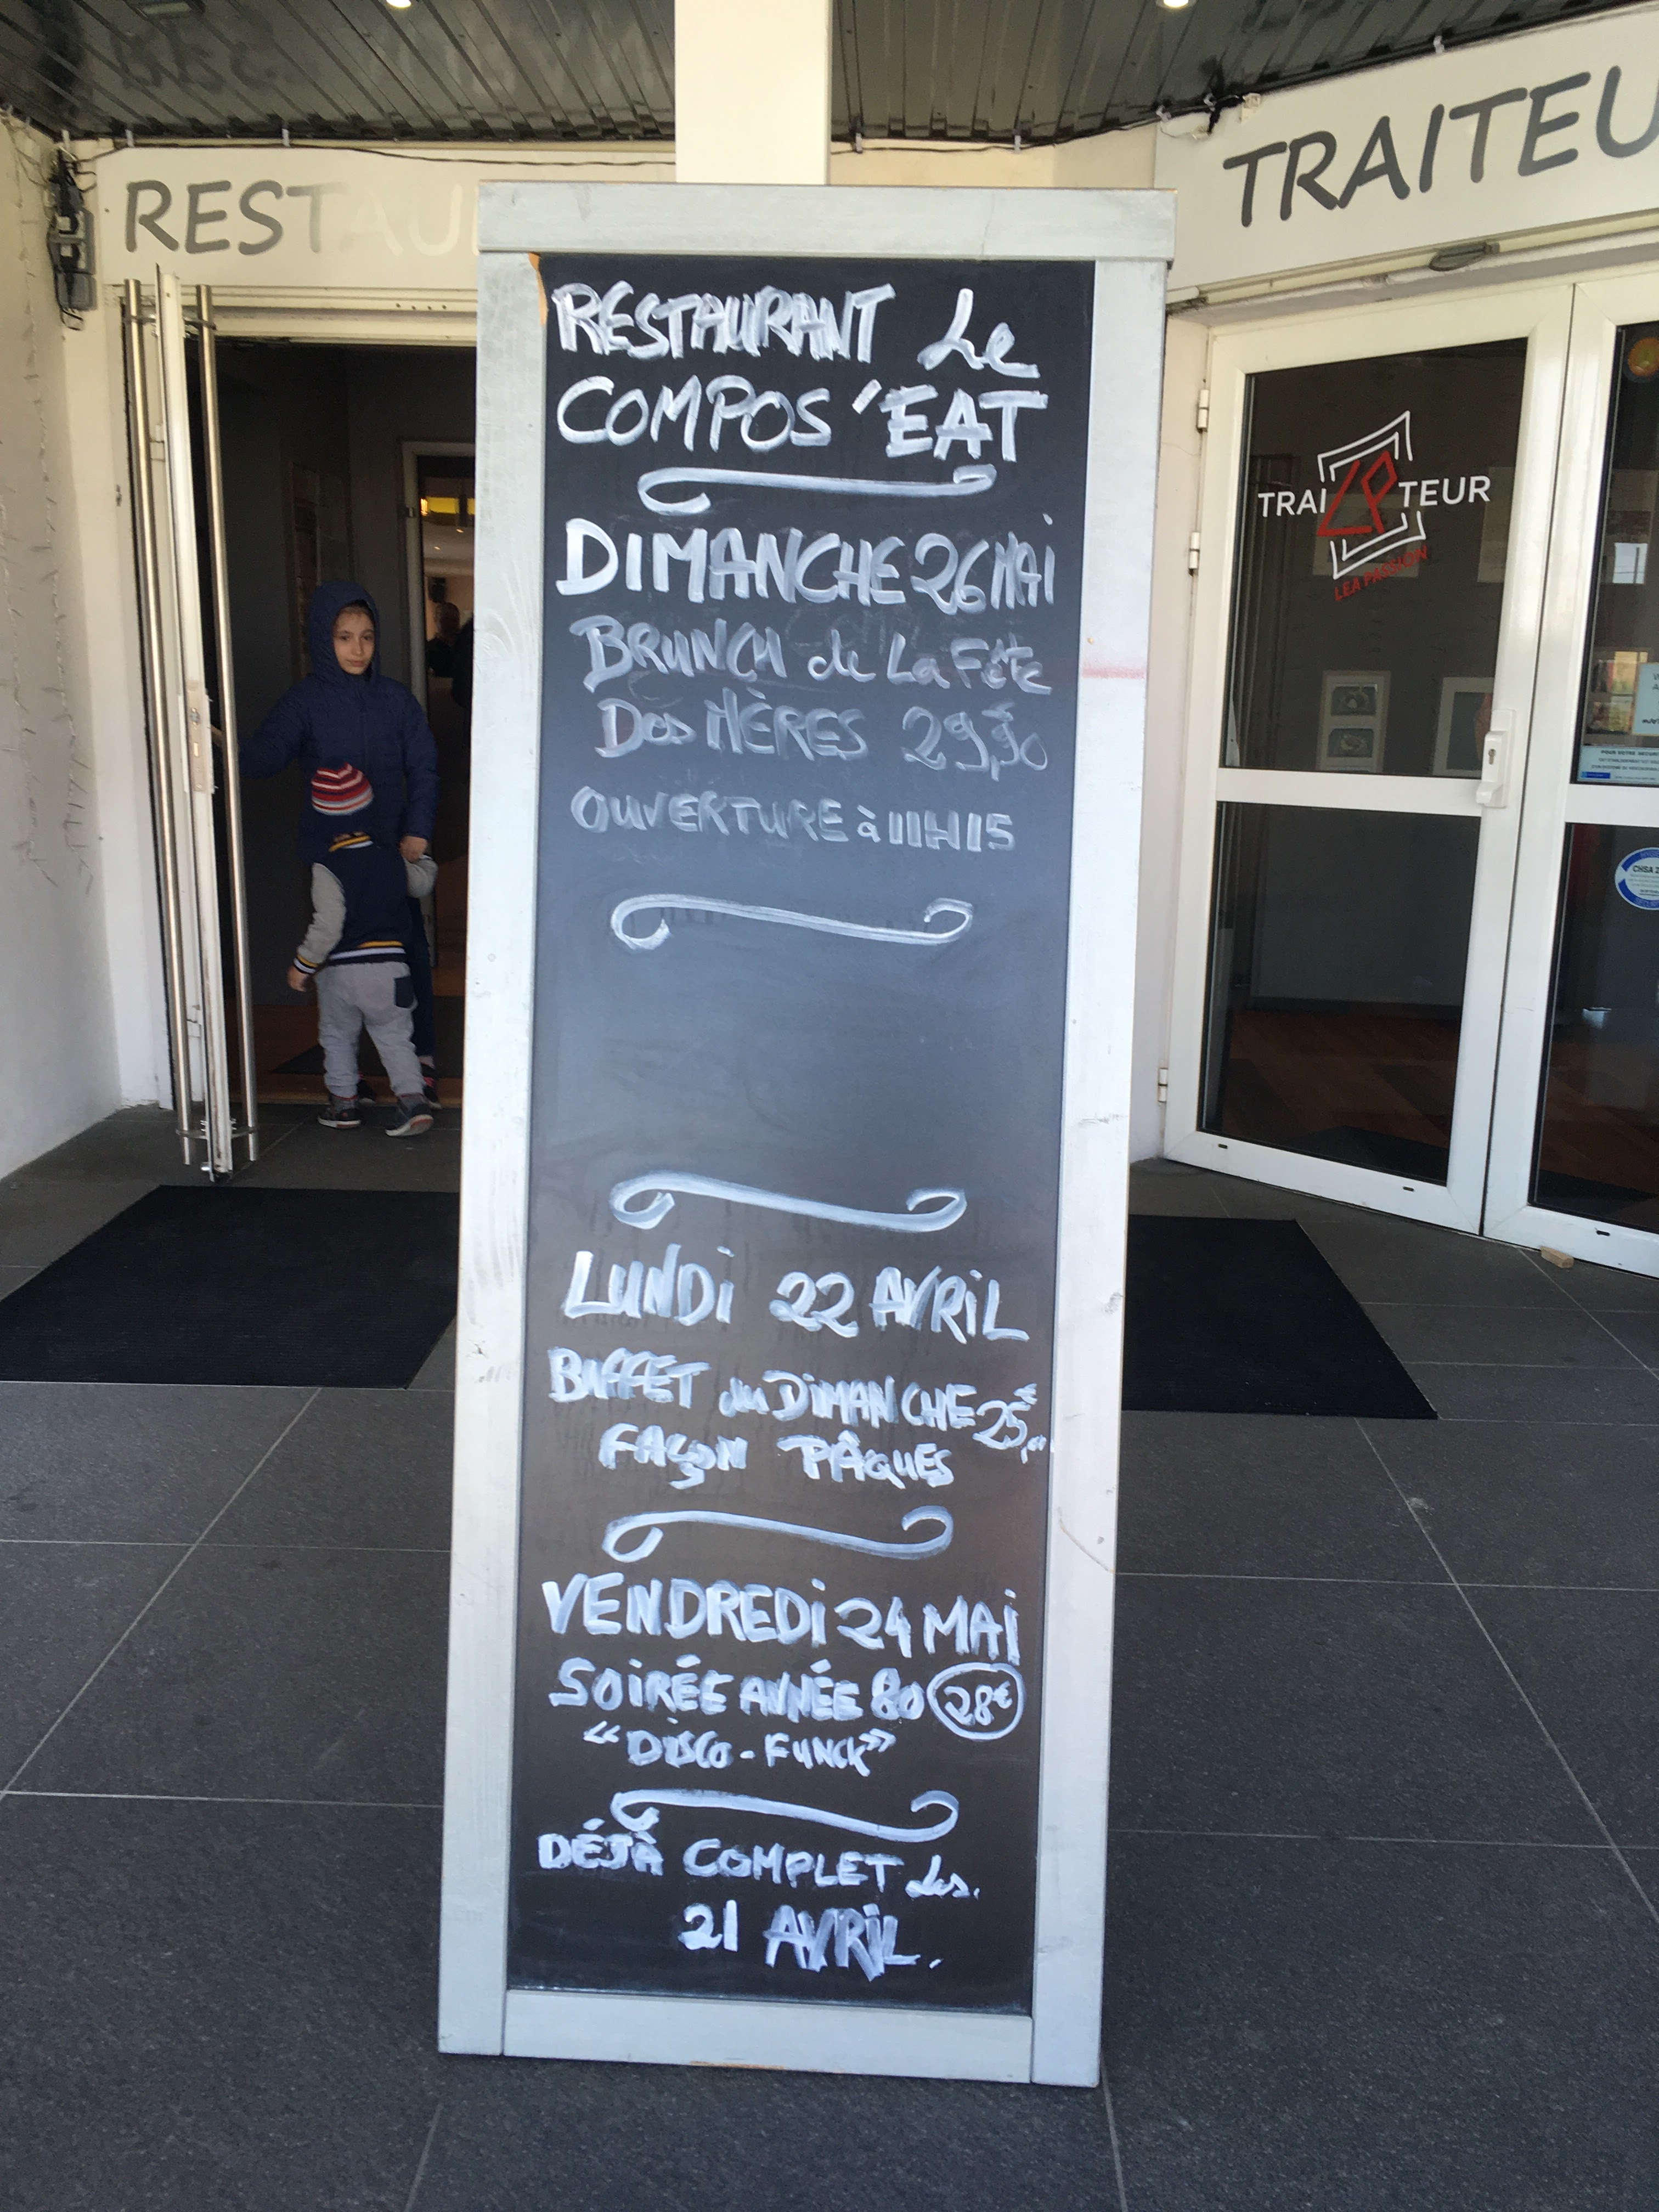 REST
TRAITEU
RESTAURANT Le
COMPOS'EAT
DIMANCHE 26 MAI
BRUNCH de La Fête
Des MÈRES 29,90€
OUVERTURE à 11H15
LUNDI 22 AVRIL
BUFFET du DIMANCHE 25,00€
FAÇON PÂQUES
VENDREDI 24 MAI
SOIRÉE ANNÉE 80 28€
"DISCO-FUNCK"
DÉJÀ COMPLET Les.
21 AVRIL.
TRAI LP TEUR
LEA PASSION
POUR VOTRE SECURI
CHSA